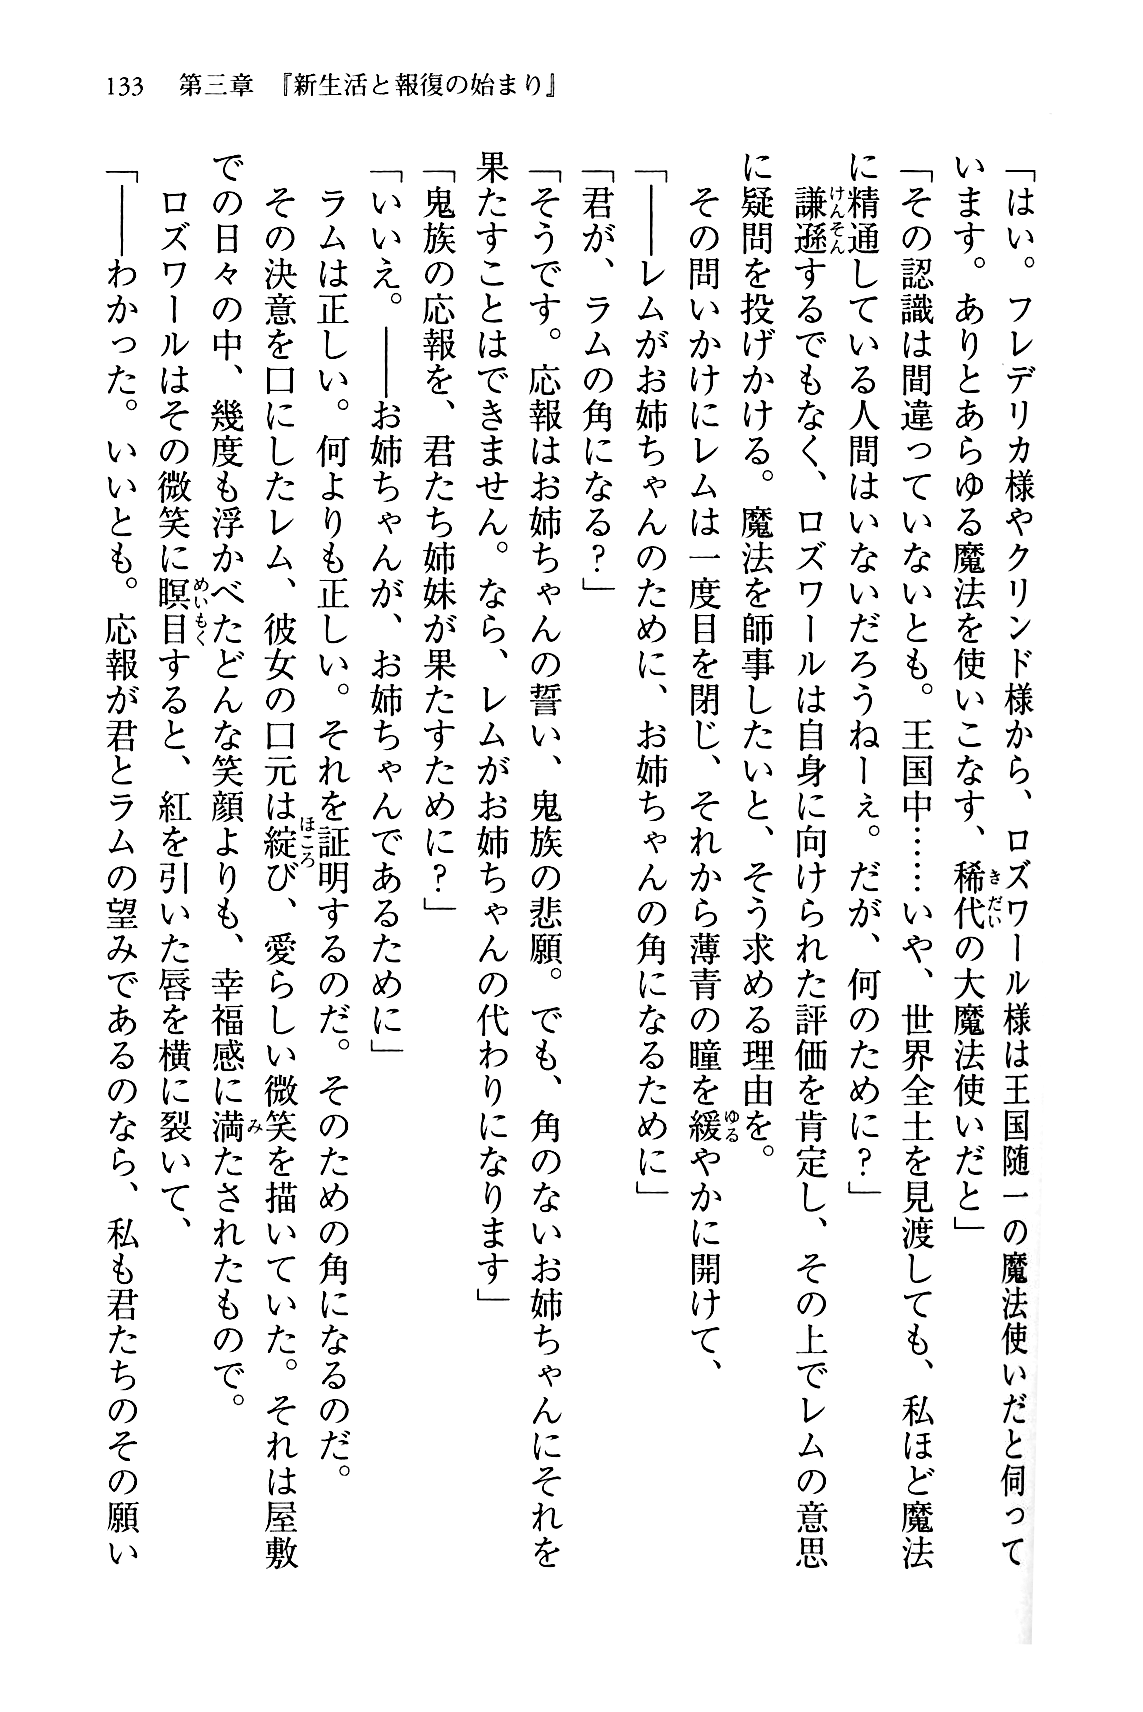 133　第三章　『新生活と報復の始まり』
「はい。フレデリカ様やクリンド様から、ロズワール様は王国随一の魔法使いだと伺って
います。ありとあらゆる魔法を使いこなす、稀代の大魔法使いだと」
「その認識は間違っていないとも。王国中……いや、世界全土を見渡しても、私ほど魔法
に精通している人間はいないだろうねーぇ。だが、何のために？」
　謙遜するでもなく、ロズワールは自身に向けられた評価を肯定し、その上でレムの意思
に疑問を投げかける。魔法を師事したいと、そう求める理由を。
　その問いかけにレムは一度目を閉じ、それから薄青の瞳を緩やかに開けて、
「――レムがお姉ちゃんのために、お姉ちゃんの角になるために」
「君が、ラムの角になる？」
「そうです。応報はお姉ちゃんの誓い、鬼族の悲願。でも、角のないお姉ちゃんにそれを
果たすことはできません。なら、レムがお姉ちゃんの代わりになります」
「鬼族の応報を、君たち姉妹が果たすために？」
「いいえ。――お姉ちゃんが、お姉ちゃんであるために」
　ラムは正しい。何よりも正しい。それを証明するのだ。そのための角になるのだ。
　その決意を口にしたレム、彼女の口元は綻び、愛らしい微笑を描いていた。それは屋敷
での日々の中、幾度も浮かべたどんな笑顔よりも、幸福感に満たされたもので。
　ロズワールはその微笑に瞑目すると、紅を引いた唇を横に裂いて、
「――わかった。いいとも。応報が君とラムの望みであるのなら、私も君たちのその願い